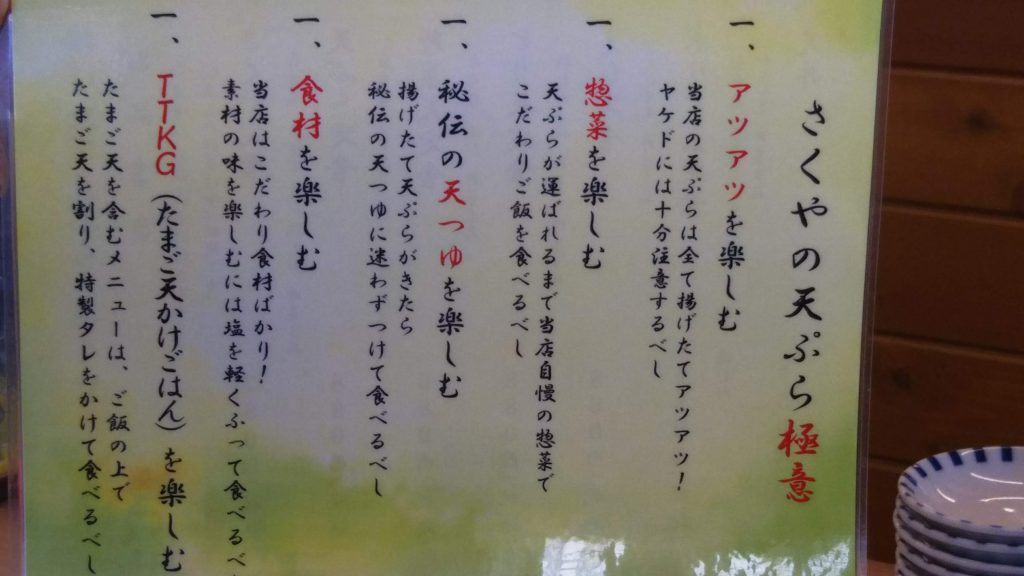 さくやの天ぷら極意
一、アツアツを楽しむ
当店の天ぷらは全て揚げたてアツアツ!
ヤケドには十分注意するべし
一、惣菜を楽しむ
天ぷらが運ばれるまで当店自慢の惣菜で
こだわりご飯を食べるべし
一、秘伝の天つゆを楽しむ
揚げたて天ぷらがきたら
秘伝の天つゆに迷わずつけて食べるべし
一、食材を楽しむ
当店はこだわり食材ばかり!
素材の味を楽しむには塩を軽くふって食べるべ
一、TTKG(たまご天かけごはん)を楽しむ
たまご天を含むメニューは、ご飯の上で
たまご天を割り、特製タレをかけて食べるべし